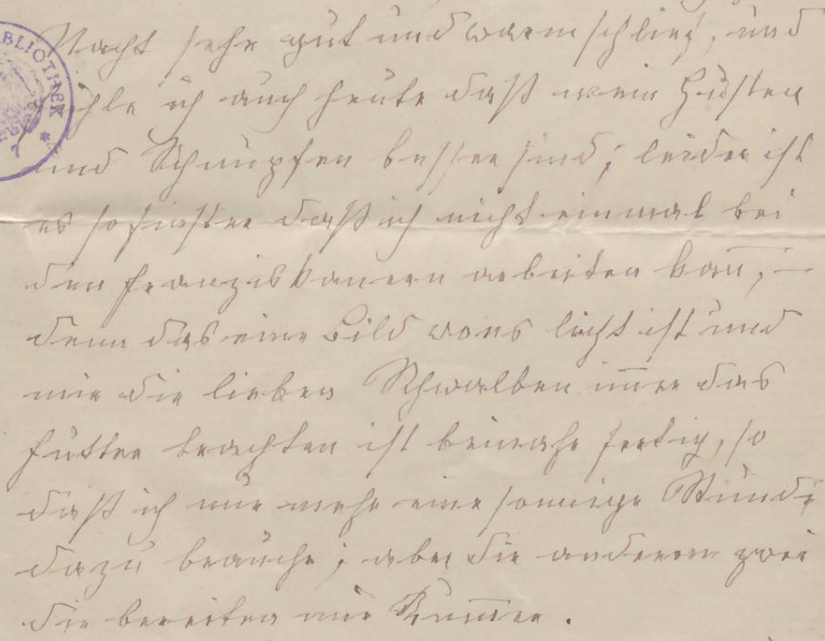 Nacht sehr gut und warm schlief, und
fühle ich auch heute daß mein Husten
und Schnupfen besser sind; leider ist
es so finster daß ich nicht einmal bei
den Franziskanern arbeiten kan̄, —
denn das eine Bild wo es licht ist und
mir die lieben Schwalben im̄er das
Futter brachten ist beinahe fertig, so
daß ich nur mehr eine sonnige Stunde
dazu brauche; aber die anderen zwei
die bereiten mir Kum̄er.
BIBLIOTHEK